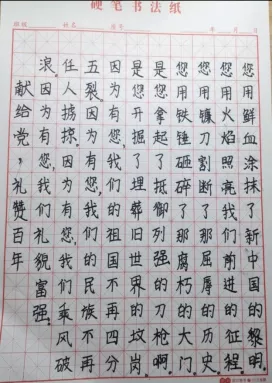 硬笔书法纸
班级 姓名 年 月 日
您用鲜血涂抹了新中国的黎明。
您用火焰照亮了我们前进的征程
您用镰刀割断了那屈辱的历史
您用铁锤砸碎了那腐朽的大门。
是您拿起抵御列强的刀枪啊
是您开掘埋葬旧世界的坟岗
因为有您,我们的祖国不再四分
五裂。因为有了您,我们的民族不再
任人掳掠。因为有您,我们乘风破
浪。因为有您,我们礼貌富强。
献给党,礼赞百年